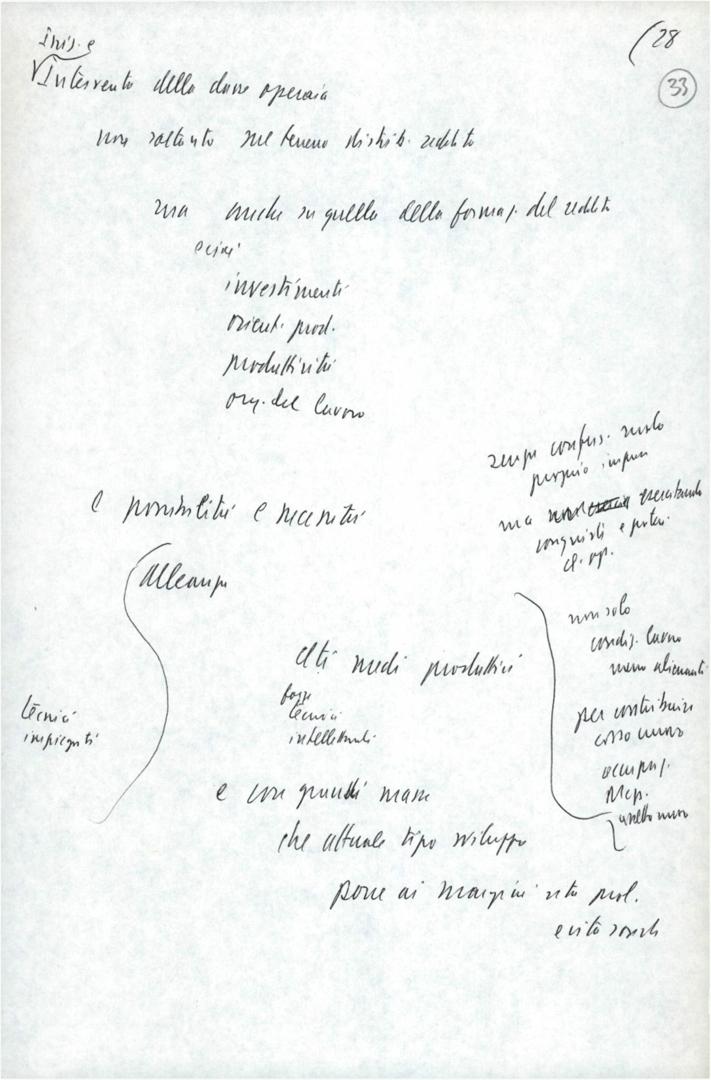 Iniz. e
(28
33
Intervento della classe operaia
non soltanto sul terreno distrib. reddito
ma anche su quello della formaz. del reddito
e cioè
investimenti
orient. prod.
produttività
org. del lavoro
senza confus. ruolo
proprio impren
ma esercitando
conquisti e poteri
cl. op.
e possibilità e necessità
alleanze
non solo
condiz. lavoro
meno alienanti
ceti medi produttivi
forze
tecnici
intellettuali
tecnici
impiegati
per contribuire
corso nuovo
occupaz.
Mezz.
assetto nuovo
e con grandi masse
che attuale tipo sviluppo
pone ai margini vita prod.
e vita sociale